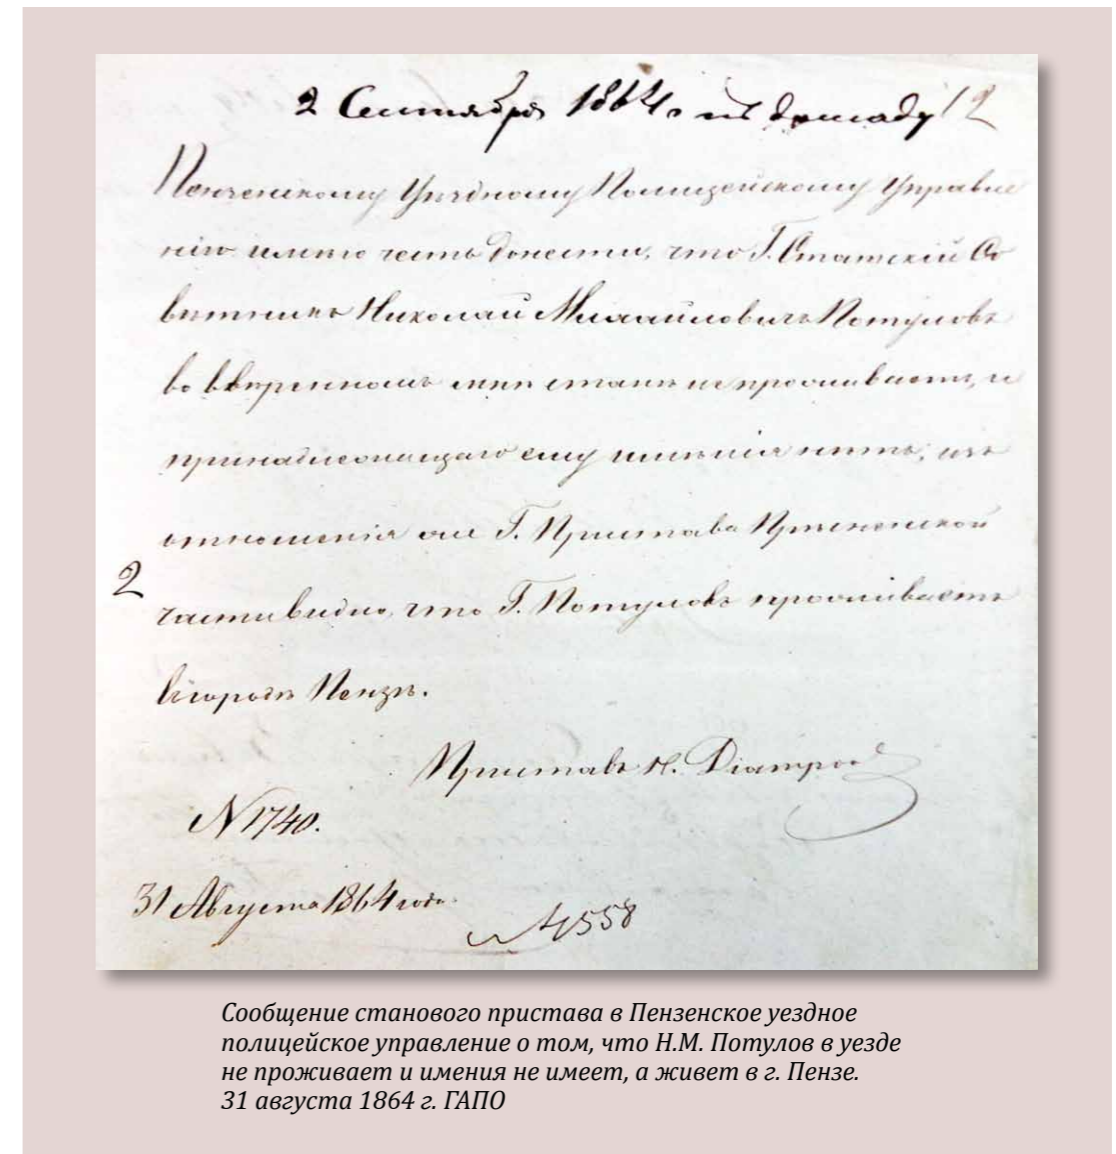 2 Сентября 1864 г. къ докладу 12
Пензенскому Уѣздному Полицейскому Управле
нію имѣю честь донести, что Г. Статскій Со
вѣтникъ Николай Михайловичь Потуловъ
во ввѣренномъ мнѣ станѣ не проживаетъ, и
принадлежащаго ему имѣнія нѣтъ; изъ
отношенія же Г. Пристава
части видно, что Г. Потуловъ проживаетъ
2
въ городѣ Пензѣ.
Приставъ
N 1740.
31 Августа 1864 года.
N 4558
Сообщение станового пристава в Пензенское уездное
полицейское управление о том, что Н.М. Потулов в уезде
не проживает и имения не имеет, а живет в г. Пензе.
31 августа 1864 г. ГАПО